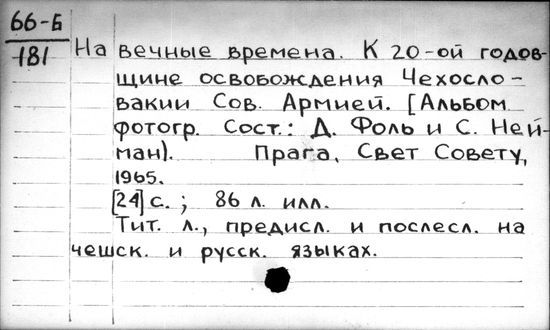 66-Б
181
На вечные времена. К 20-ой годов-
щине освобождения Чехосло-
вакии Сов. Армией. [Альбом
фотогр. Сост.: Д. Фоль и С. Ней-
ман). Прага, Свет Совету,
1965.
[24] с.; 86 л. илл.
Тит. л., предисл. и послесл. на
чешск. и русск. языках.